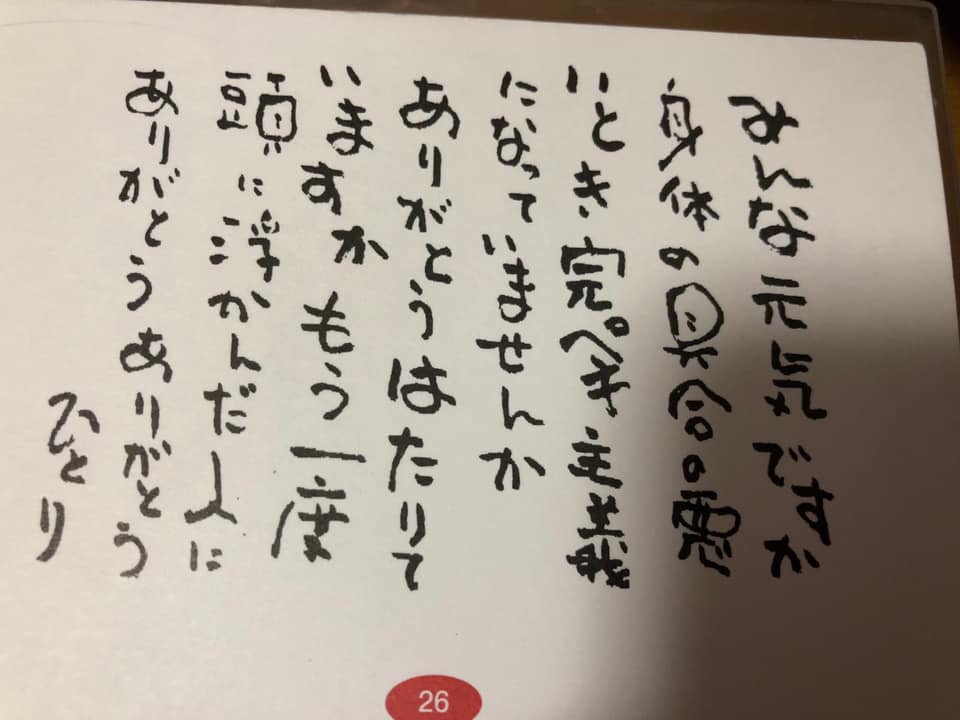 みんな元気ですか
身体の具合の悪
いとき完ぺき主義
になっていませんか
ありがとうはたりて
いますか もう一度
頭に浮かんだ人に
ありがとうありがとう
ひとり
26